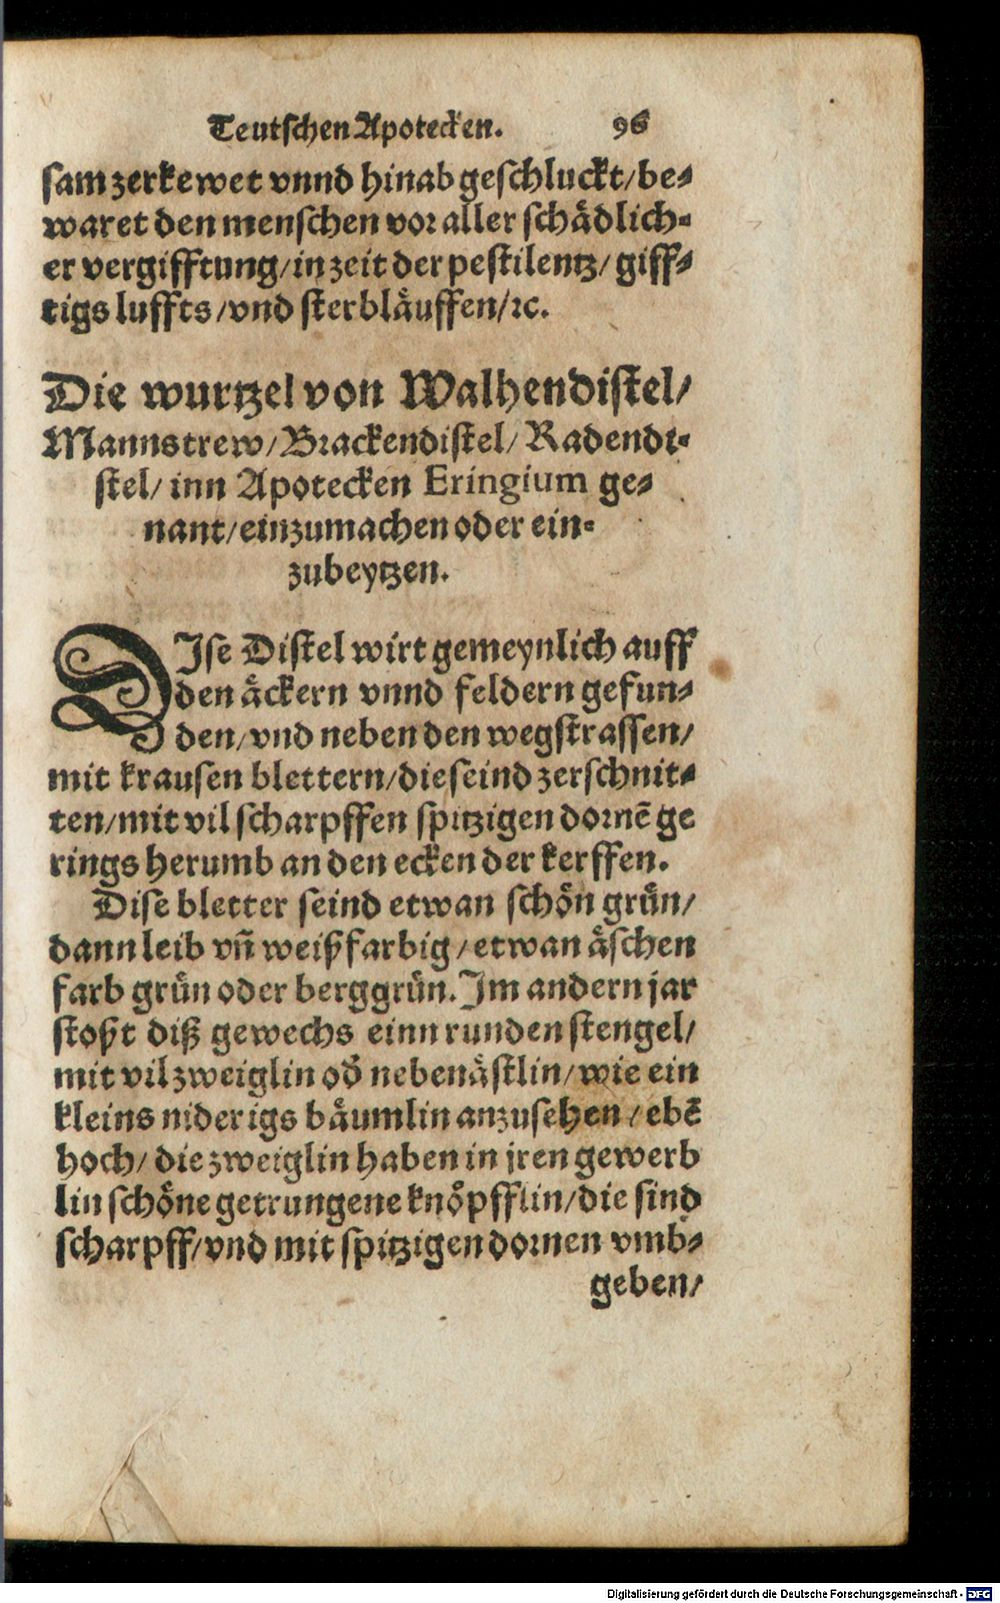 Teutschen Apotecken. 96
sam zerkewet vnnd hinab geschluckt/be⸗
waret den menschen vor aller schaͤdlich⸗
er vergifftung/in zeit der pestilentz/giff⸗
tigs luffts/vnd sterblaͤuffen/ꝛc.
Die wurtzel von Walhendistel/
Mannstrew/Brackendistel/Radendi⸗
stel/inn Apotecken Eringium ge⸗
nant/einzumachen oder ein⸗
zubeytzen.
DIse Distel wirt gemeynlich auff
den aͤckern vnnd feldern gefun⸗
den/vnd neben den wegstrassen/
mit krausen blettern/die seind zerschnit⸗
ten/mit vil scharpffen spitzigen dornē ge
rings herumb an den ecken der kerffen.
Dise bletter seind etwan schoͤn gruͤn/
dann leib vñ weißfarbig/etwan aͤschen
farb gruͤn oder berggruͤn. Im andern jar
stoßt diß gewechs einn runden stengel/
mit vil zweiglin od̄ nebenaͤstlin/wie ein
kleins niderigs baͤumlin anzusehen/ebē
hoch/die zweiglin haben in jren gewerb
lin schoͤne getrungene knoͤpfflin/die sind
scharpff/vnd mit spitzigen dornen vmb⸗
geben/
Digitalisierung gefördert durch die Deutsche Forschungsgemeinschaft - DFG